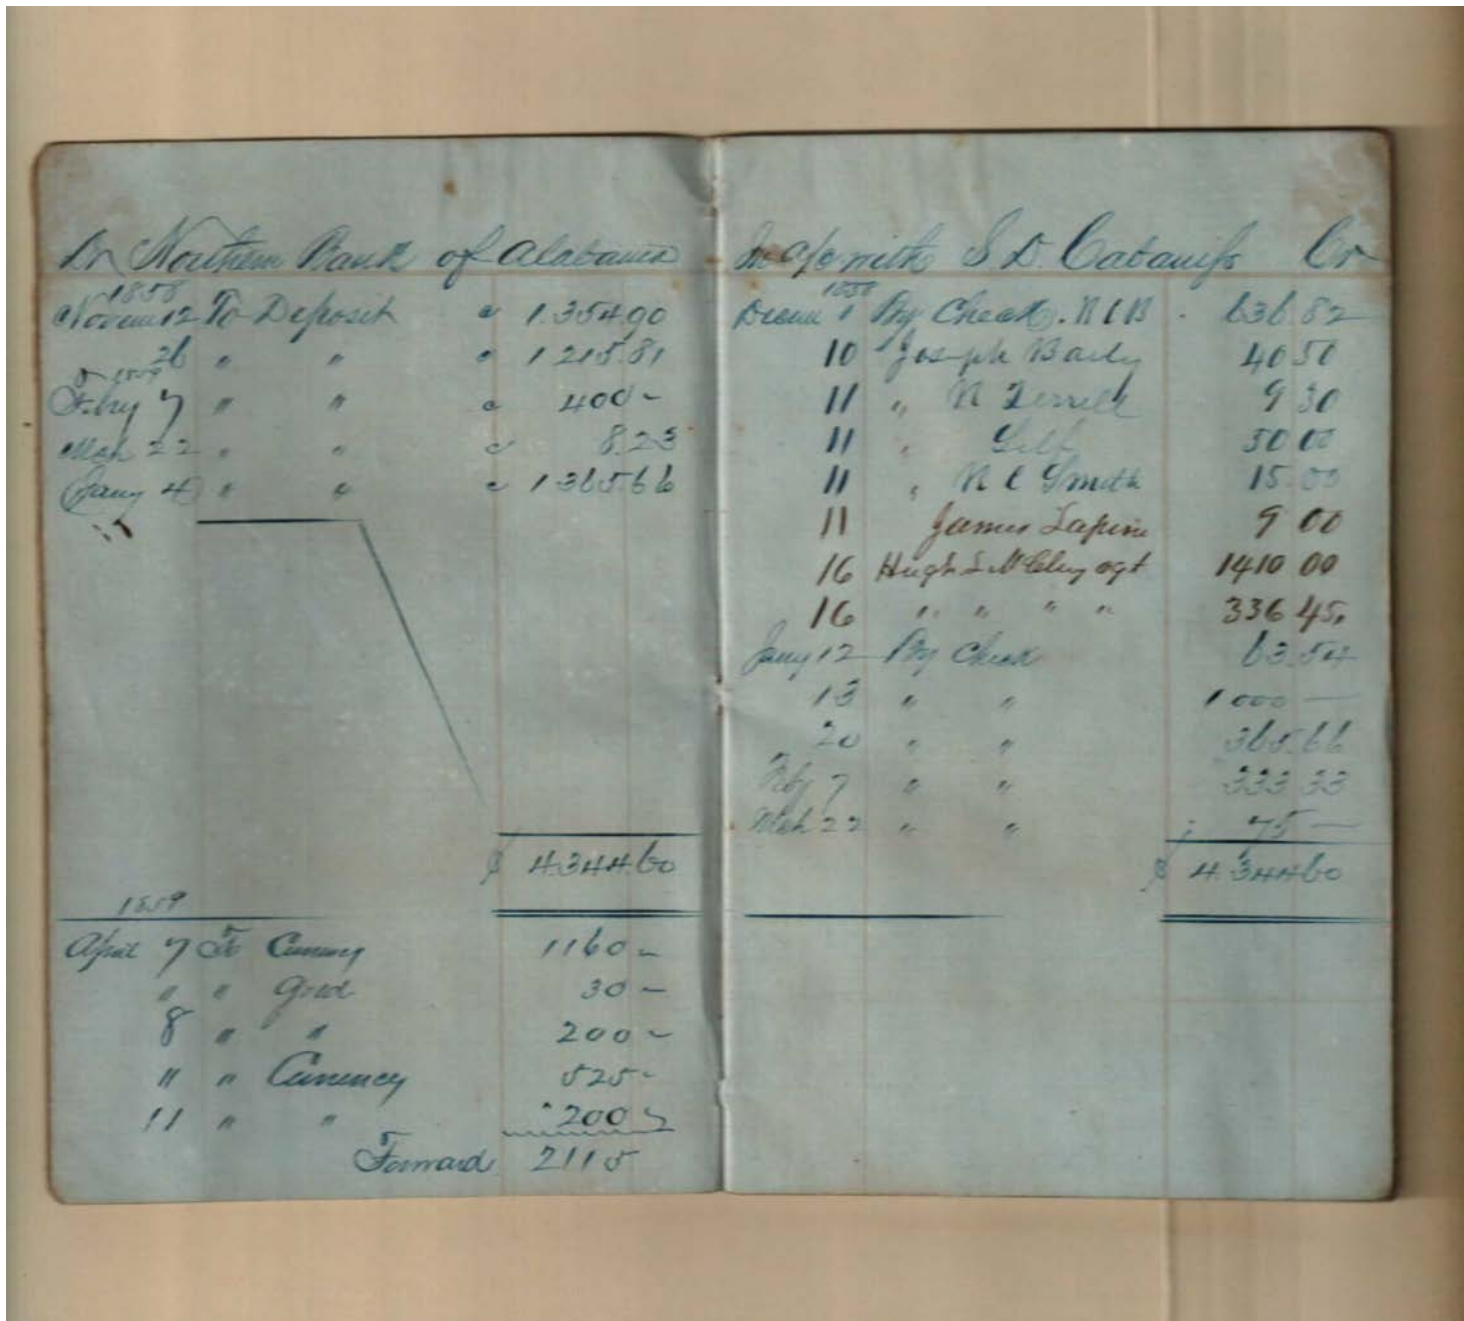 Dr Northern Bank of Alabama
1858
Novem 12 To Deposit " 1.354 90
26 " " " 1 215.81
1859
Feby 7 " " " 400 -
Mch 22 " " " 8.23
Jany 4 " " " 1 365.66
$ 4.344.60
1859
April 7 To Currency 1160 -
" " Gold 30 -
8 " " 200 -
" " Currency 525 -
11 " " 200 -
Forward 2115
In a/c with S. D. Cabaniss Cr
1858
Decem 1 By Check. N C B 636 82
10 Joseph Baily 40 50
11 " N Terrell 9 30
11 " Self 50 00
11 " N C Smith 15.00
11 James Lapine 9 00
16 Hugh L McClung agt 1410 00
16 " " " " 336 45
Jany 12 By Check 63.54
13 " " 1 000 —
20 " " 365.66
Feby 7 " " 333 33
Mch 22 " " 75 —
$ 4.344 60